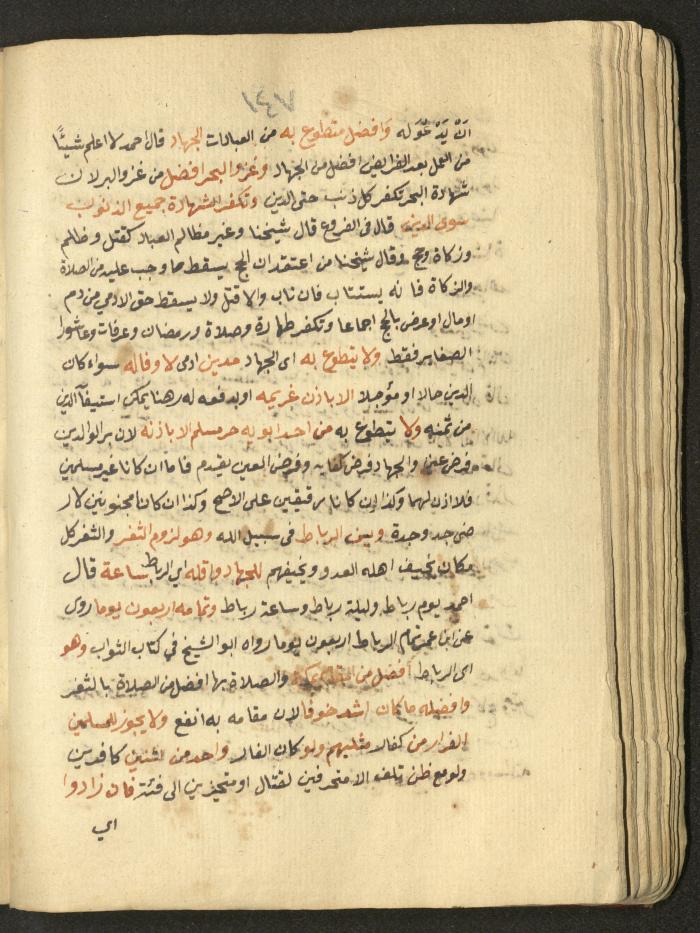 ٧٤١
ان يدعو له وافضل متطوع به من العبادات الجهاد قال احمد لا اعلم شيئًا
من العمل بعد الفرايض افضل من الجهاد وغزو البحر افضل من غزو البر لان
شهادة البحر تكفر كل ذنب حتى الدين وتكفر الشهادة جميع الذنوب
سوى الدين قال في الفروع قال شيخنا وغير مظالم العباد كقتل وظلم
وزكاة وحج وقال شيخنا من اعتقد ان الحج يسقط ما وجب عليه من الصلاة
والزكاة فانه يستتاب فان تاب والا قتل ولا يسقط حق الادمي من دم
او مال او عرض بالحج اجماعا وتكفر طهارة وصلاة ورمضان وعرفات وعاشورا
الصغاير فقط ولا يتطوع به اي الجهاد مدين ادمي لا وفا له سواء كان
الدين حالا او مؤجلا الا باذن غريمه او يدفعه له رهنا يمكن استيفآ الدين
من ثمنه ولا يتطوع به من احد ابويه حر مسلم الا باذنه لان بر الوالدين
فرض عين والجهاد فرض كفايه وفرض العين يقدم فاما ان كانا غير مسلمين
فلا اذن لهما وكذا ان كانا رقيقين على الاصح وكذا ان كانا مجنونين لا ر
ضى جد وجدة ويسن الرباط في سبيل الله وهو لزوم الثغر والثغر كل
مكان يخيف اهله العدو ويخيفهم للجهاد واقله اي الرباط ساعة قال
احمد يوم رباط وليلة رباط وساعة رباط وتمامه اربعون يوما روى
عن ابن عمر تمام الرباط اربعون يوما رواه ابو الشيخ في كتاب الثواب وهو
اي الرباط افضل من المقام بمكة والصلاة بها افضل من الصلاة بالثغر
وافضله ما كان اشد خوفا لان مقامه به انفع ولا يجوز للمسلمين
الفرار من كفار مثليهم ولو كان الفار واحد من اثنين كافرين
ولو مع ظن تلف الا متحرفين لقتال او متحيزين الى فئة فان زادوا
اي